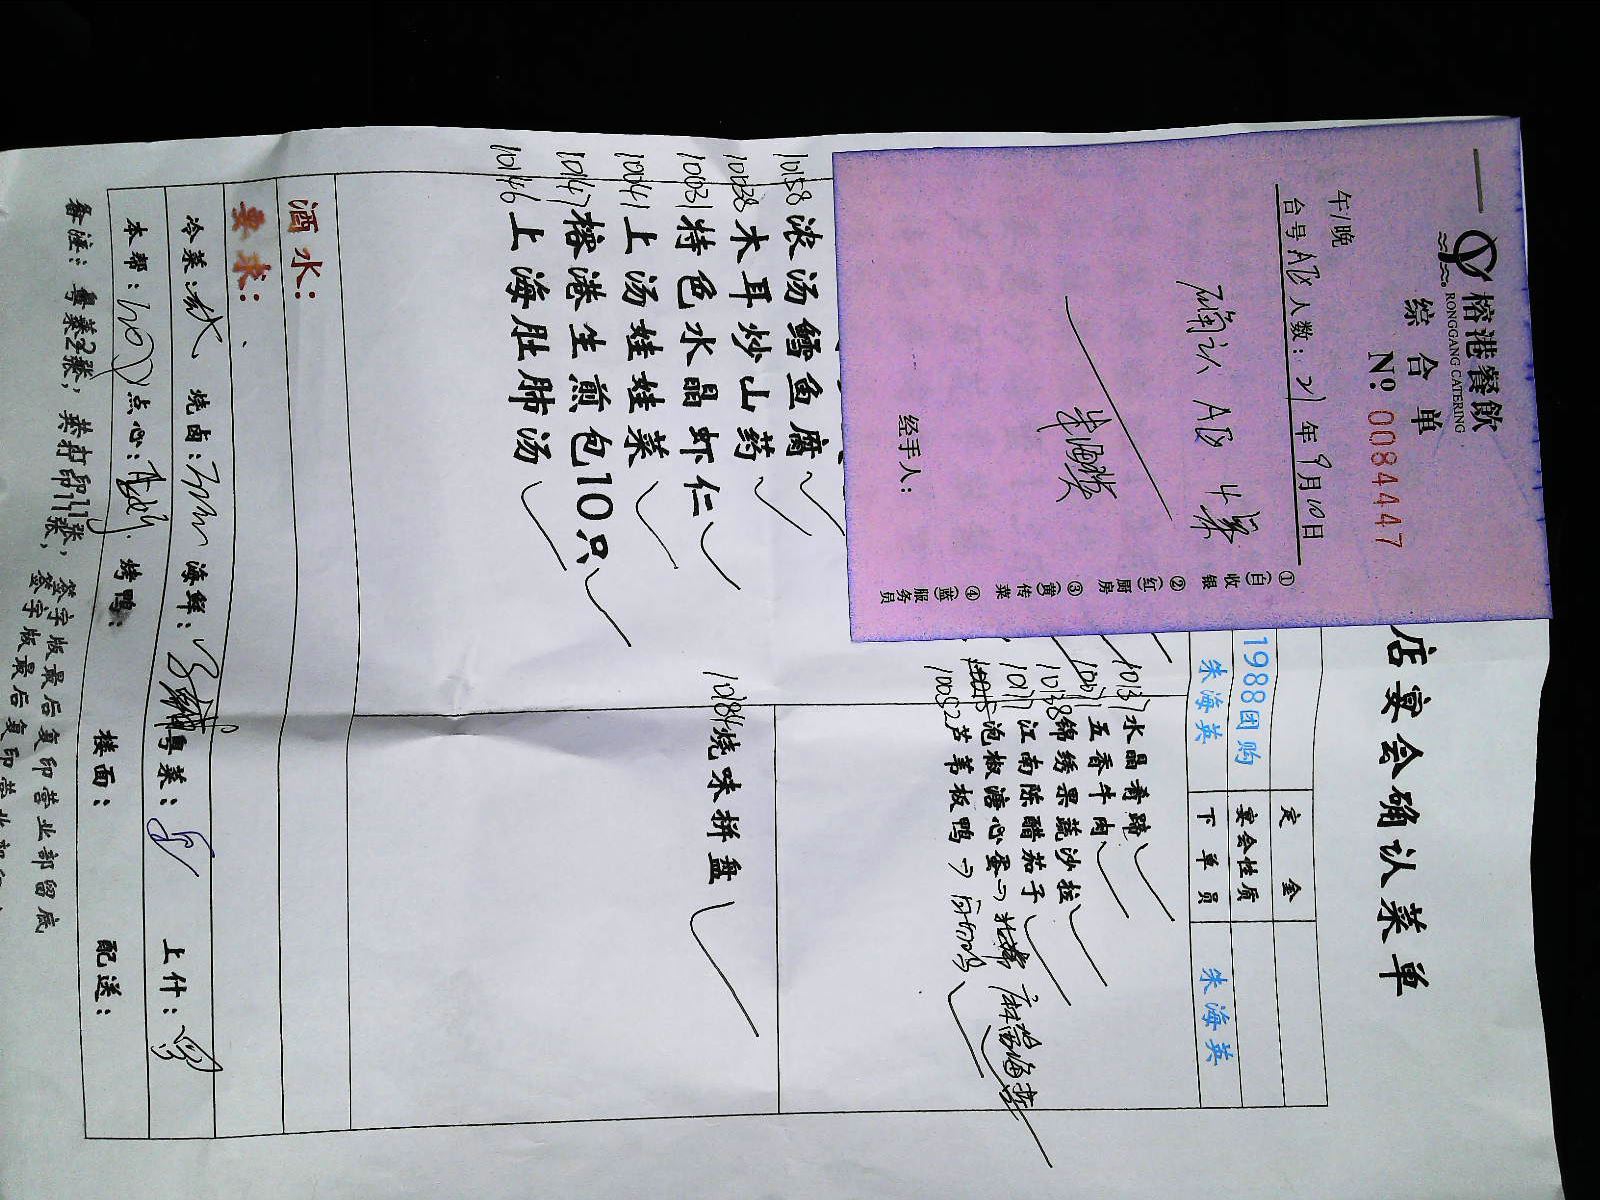 榕港餐飲
RONGGANG CATERING
综合单
№ 008447
午/晚
台号 AB 人数: 21年9月10日
确认 AB 4桌
朱海英
经手人:
①(白)收银 ②(红)厨房 ③(黄)传菜 ④(蓝)服务员
店宴会确认菜单
定金
1988团购 宴会性质
朱海英 下单员 朱海英
10137 水晶肴蹄
五香牛肉
10138 锦绣果蔬沙拉
10171 江南陈醋茄子
泡椒溏心蛋→
10052 芦苇板鸭→
10158 浓汤鳕鱼腐
木耳炒山药
10031 特色水晶虾仁
10041 上汤娃娃菜
10147 榕港生煎包10只
10146 上海肚肺汤
10184 烧味拼盘
酒水:
要求:
冷菜: 烧卤: 海鲜: 粤菜: 上什:
本帮: 点心: 烤鸭: 楼面: 配送:
备注: 粤菜2张, 共打印11张, 签字版最后复印营业部留底
签字版最后复印营业部